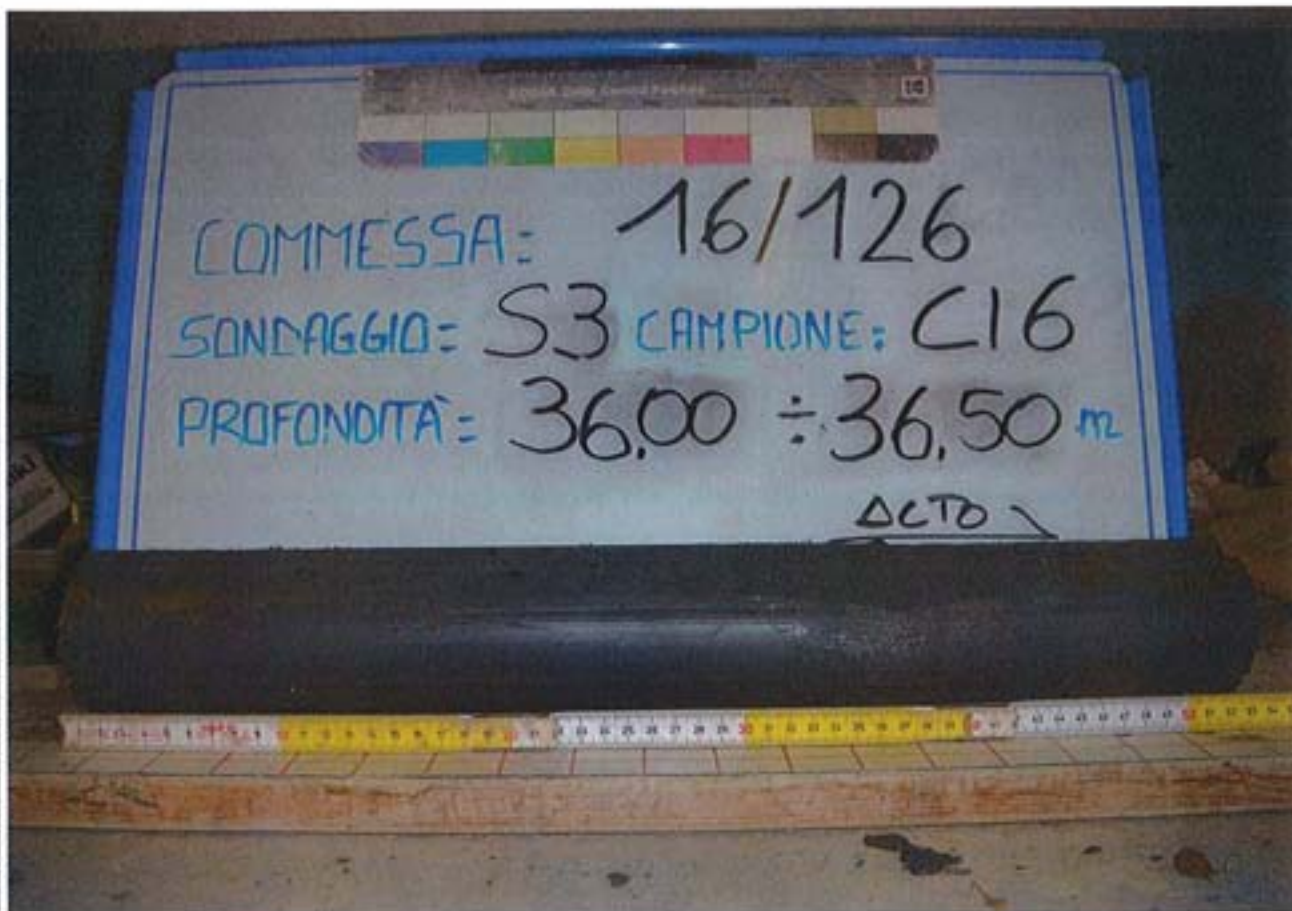 COMMESSA: 16/126
SONDAGGIO: S3 CAMPIONE: CI6
PROFONDITÀ: 36,00 ÷ 36,50 m